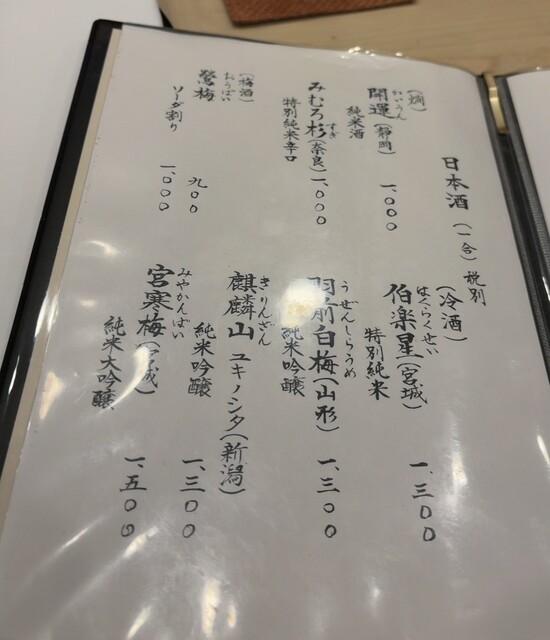 日本酒(一合)税別
(燗)
かいうん
開運(静岡)
純米酒
一、〇〇〇
すぎ
みむろ杉(奈良)
特別純米辛口
一、〇〇〇
(梅酒)
おうばい
鶯梅
九〇〇
ソーダ割り
一、〇〇〇
(冷酒)
はくらくせい
伯楽星(宮城)
特別純米
一、三〇〇
うぜんしらうめ
羽前白梅(山形)
純米吟醸
一、三〇〇
きりんざん
麒麟山 ユキノシタ(新潟)
純米吟醸
一、三〇〇
みやかんばい
宮寒梅(宮城)
純米大吟醸
一、五〇〇